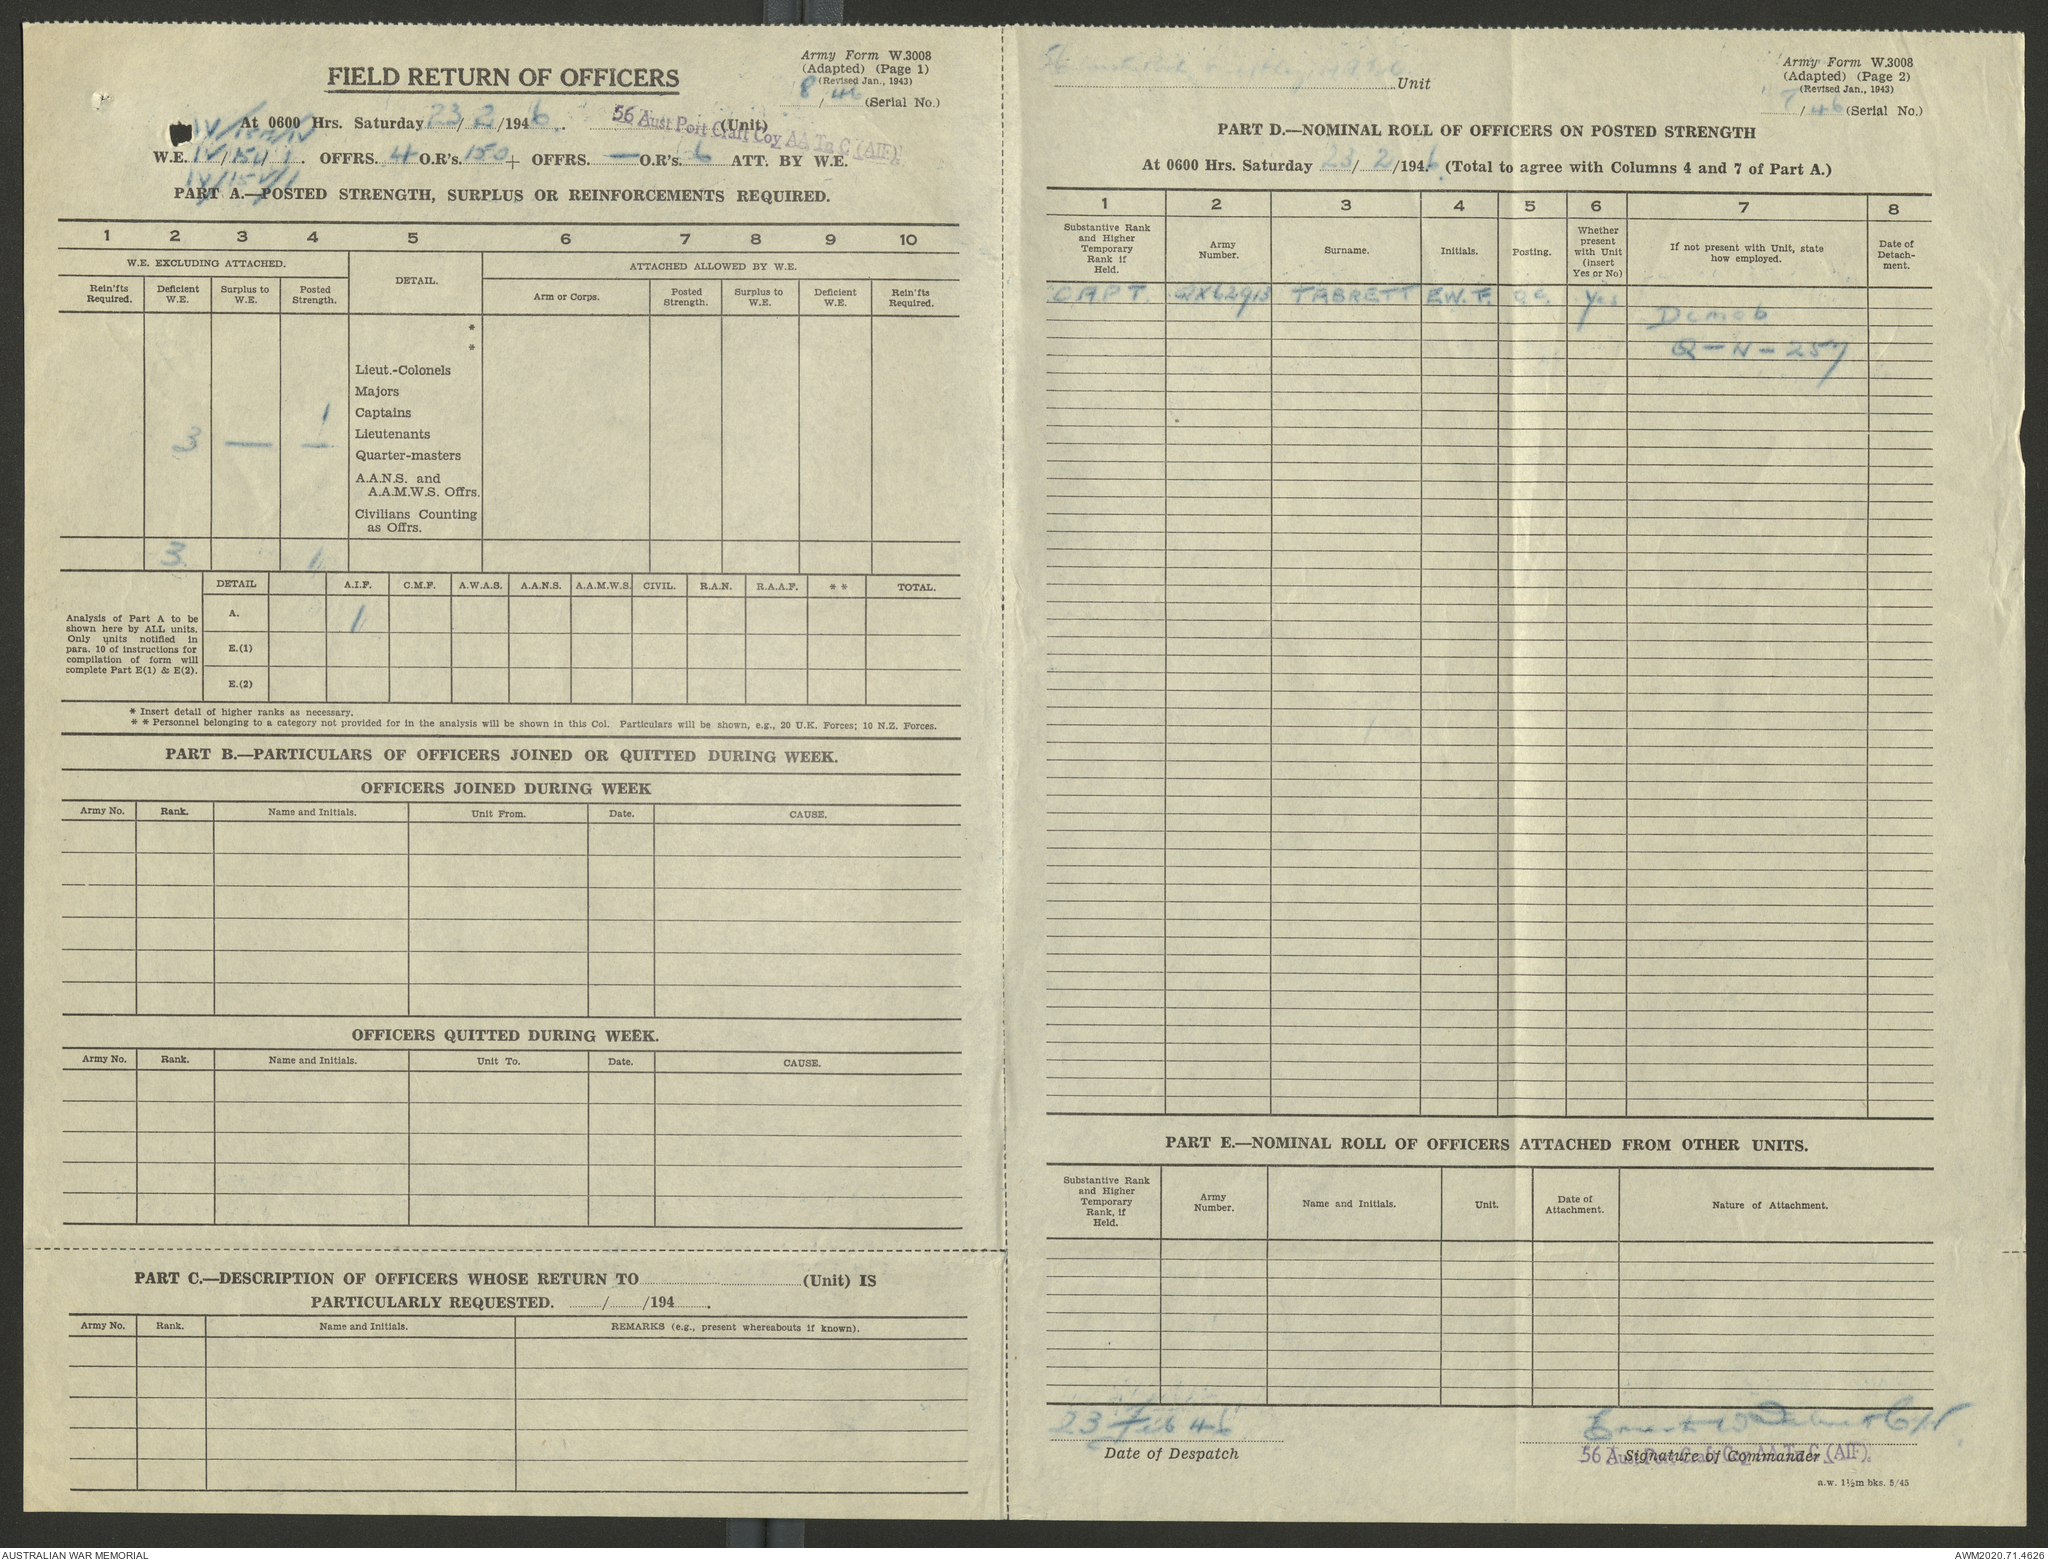 Army Form W.3008
(Adapted) (Page 1)
(Revised Jan., 1943)
8/46 (Serial No.)
FIELD RETURN OF OFFICERS
At 0600 Hrs. Saturday 23/2/1946. 56 Aust Port Craft Coy AA Tn C (AIF). (Unit)
W.E. IV/ OFFRS. 4 O.R's. 150 + OFFRS. — O.R's. 6 ATT. BY W.E.
PART A.—POSTED STRENGTH, SURPLUS OR REINFORCEMENTS REQUIRED.
1 2 3 4 5 6 7 8 9 10
W.E. EXCLUDING ATTACHED. DETAIL. ATTACHED ALLOWED BY W.E.
Rein'fts Required. Deficient W.E. Surplus to W.E. Posted Strength. Arm or Corps. Posted Strength. Surplus to W.E. Deficient W.E. Rein'fts Required.
*
*
Lieut.-Colonels
Majors
1 Captains
3 — — Lieutenants
Quarter-masters
A.A.N.S. and
A.A.M.W.S. Offrs.
Civilians Counting
as Offrs.
3 1
DETAIL A.I.F. C.M.F. A.W.A.S. A.A.N.S. A.A.M.W.S. CIVIL. R.A.N. R.A.A.F. * * TOTAL.
Analysis of Part A to be
shown here by ALL units.
Only units notified in
para. 10 of instructions for
compilation of form will
complete Part E(1) & E(2).
A. 1
E.(1)
E.(2)
* Insert detail of higher ranks as necessary.
* * Personnel belonging to a category not provided for in the analysis will be shown in this Col. Particulars will be shown, e.g., 20 U.K. Forces; 10 N.Z. Forces.
PART B.—PARTICULARS OF OFFICERS JOINED OR QUITTED DURING WEEK.
OFFICERS JOINED DURING WEEK
Army No. Rank. Name and Initials. Unit From. Date. CAUSE.
OFFICERS QUITTED DURING WEEK.
Army No. Rank. Name and Initials. Unit To. Date. CAUSE.
PART C.—DESCRIPTION OF OFFICERS WHOSE RETURN TO (Unit) IS
PARTICULARLY REQUESTED. / /194 .
Army No. Rank. Name and Initials. REMARKS (e.g., present whereabouts if known).
Army Form W.3008
(Adapted) (Page 2)
(Revised Jan., 1943)
56 Unit
7/46 (Serial No.)
PART D.—NOMINAL ROLL OF OFFICERS ON POSTED STRENGTH
At 0600 Hrs. Saturday 23/2/1946. (Total to agree with Columns 4 and 7 of Part A.)
1 2 3 4 5 6 7 8
Substantive Rank and Higher Temporary Rank if Held. Army Number. Surname. Initials. Posting. Whether present with Unit (insert Yes or No) If not present with Unit, state how employed. Date of Detach-ment.
CAPT. QX62913 TABRETT E.W.F. O.C. Yes
Demob
Q-N-257
PART E.—NOMINAL ROLL OF OFFICERS ATTACHED FROM OTHER UNITS.
Substantive Rank and Higher Temporary Rank, if Held. Army Number. Name and Initials. Unit. Date of Attachment. Nature of Attachment.
23 Feb 46
Date of Despatch
Signature of Commander
56 Aust Port Craft Coy AA Tn C (AIF).
a.w. 1½m bks. 5/45
AUSTRALIAN WAR MEMORIAL
AWM2020.71.4626